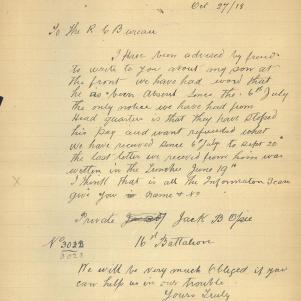 Oct 27/18
To The R C Bureau
I have been advised by friend
to write to you about my son at
the front we have had word that
he as been Absent since the 6th July
the only notice we have had from
Head quarters is that they have stoped
his Pay and want refunded what
we have received since 6th July to Sept 20th
the last letter we received from him was
written in the Trenches June 19th
I think that is all the Information I can
give you is Name & No
Private Jack B
No 3023 16th Battalion
3023
We will be very much Obliged if you
can help us in our trouble
Yours Truly